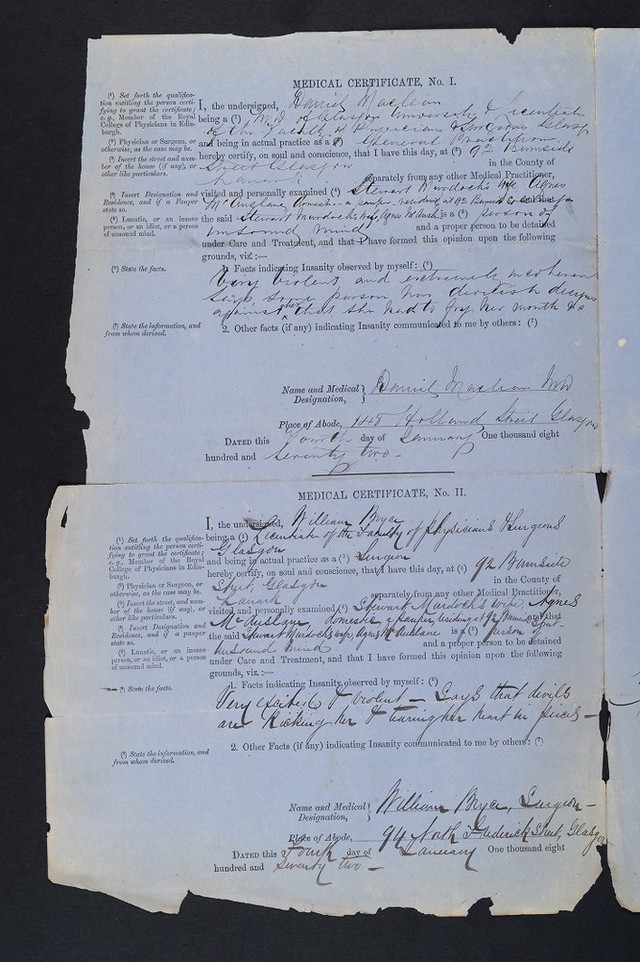 MEDICAL CERTIFICATE, No. I.
(¹) Set forth the qualifica-
tion entitling the person certi-
fying to grant the certificate;
e.g., Member of the Royal
College of Physicians in Edin-
burgh.
(²) Physician or Surgeon, or
otherwise, as the case may be.
(³) Insert the street and num-
ber of the house (if any), or
other like particulars.
(⁴) Insert Designation and
Residence, and if a Pauper
state so.
(⁵) Lunatic, or an insane
person, or an idiot, or a person
of unsound mind.
(⁶) State the facts.
(⁷) State the information, and
from whom derived.
I, the undersigned, Daniel Maclean
being a (¹) M.D. of Glasgow University & Licentiate
of the Faculty of Physicians & Surgeons Glasg
and being in actual practice as a (²) General Practitioner
hereby certify, on soul and conscience, that I have this day, at (³) 92 Burnside
Street Glasgow in the County of
Lanark separately from any other Medical Practitioner,
visited and personally examined (⁴) Stewart Murdoch's wife Agnes
McAuslane, Domestic a pauper, residing at 92 Burnside St and that
the said Stewart Murdochs wife Agnes McAuslane is a (⁵) person of
unsound mind and a proper person to be detained
under Care and Treatment, and that I have formed this opinion upon the following
grounds, viz:—
1. Facts indicating Insanity observed by myself: (⁶)
Very violent and extremely incoherent
Says some person has devilish designs
against her that she had to her mouth &c
2. Other facts (if any) indicating Insanity communicated to me by others: (⁷)
Name and Medical Designation, Daniel Maclean MD
Place of Abode, 148 Holland Street Glasgow
DATED this Fourth day of January One thousand eight
hundred and seventy two –
MEDICAL CERTIFICATE, No. II.
(¹) Set forth the qualifica-
tion entitling the person certi-
fying to grant the certificate;
e.g., Member of the Royal
College of Physicians in Edin-
burgh.
(²) Physician or Surgeon, or
otherwise, as the case may be.
(³) Insert the street and num-
ber of the house (if any), or
other like particulars.
(⁴) Insert Designation and
Residence, and if a pauper
state so.
(⁵) Lunatic, or an insane
person, or an idiot, or a person
of unsound mind.
(⁶) State the facts.
(⁷) State the information, and
from whom derived.
I, the undersigned, William Myer
being a (¹) Licentiate of the Faculty of Physicians & Surgeons
Glasgow and being in actual practice as a (²) Surgeon
hereby certify, on soul and conscience, that I have this day, at (³) 92 Burnside
Street, Glasgow in the County of
Lanark separately from any other Medical Practitioner,
visited and personally examined (⁴) Stewart Murdoch's wife, Agnes
McAuslane, domestic a pauper, residing at 92 Burnside Street and that
the said Stewart Murdoch's wife, Agnes McAuslane is a (⁵) person of
unsound mind and a proper person to be detained
under Care and Treatment, and that I have formed this opinion upon the following
grounds, viz:—
1. Facts indicating Insanity observed by myself: (⁶)
Very excited & violent – Says that devils
are kicking her & tearing her heart in pieces –
2. Other Facts (if any) indicating Insanity communicated to me by others: (⁷)
Name and Medical Designation, William Myer, Surgeon –
Place of Abode, 94 North Frederick Street, Glasgow
DATED this Fourth day of January One thousand eight
hundred and seventy two –